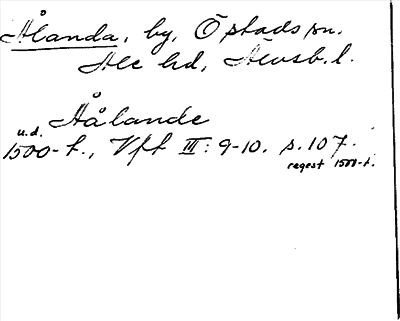 Ålanda, by, Östads sn.
Ale hd, Älvsb. l.
Hålande
u.d.
1500-t., Vft III: 9-10. s. 107.
regest 1500-t.